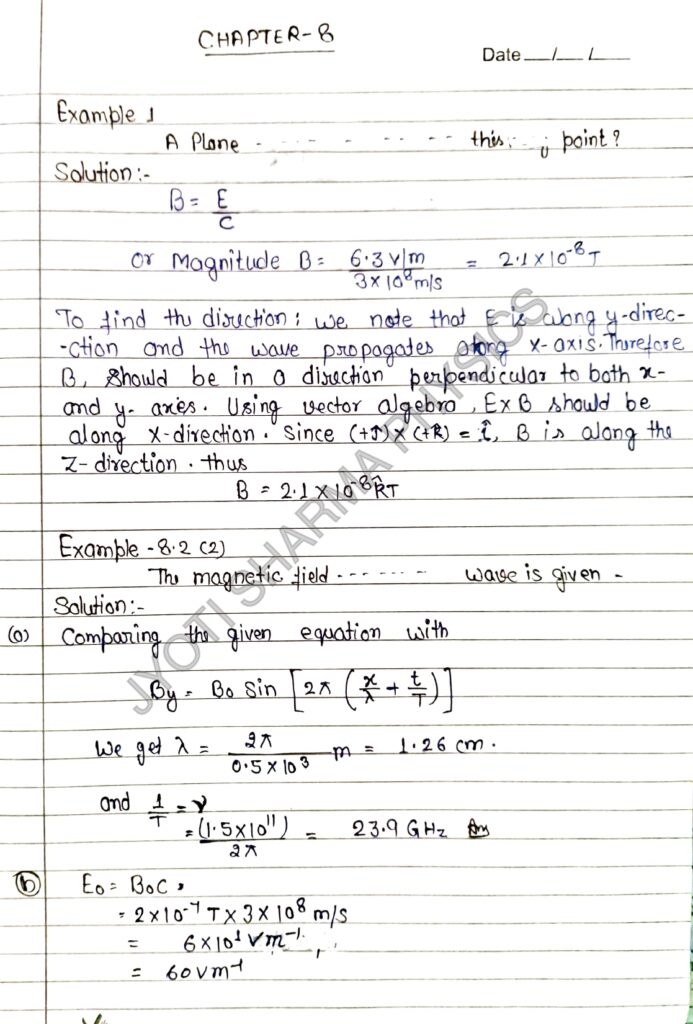 CHAPTER-8
Date __/__/__
Example 1
A Plane - - - - - - - - - this - - point?
Solution:-
B = E/C
or Magnitude B = 6.3 V/m / 3×10⁸ m/s = 2.1×10⁻⁸ T
To find the direction; we note that E is along y-direc-
-ction and the wave propagates along x-axis. Therefore
B, should be in a direction perpendicular to both x-
and y- axes. Using vector algebra, E×B should be
along x-direction. Since (+ĵ)×(+k̂) = î, B is along the
Z-direction. thus
B = 2.1×10⁻⁸ k̂T
Example - 8.2 (2)
The magnetic field - - - - - - - wave is given -
Solution:-
(a) Comparing the given equation with
By = B₀ Sin [2π (x/λ + t/T)]
We get λ = 2π / 0.5×10³ m = 1.26 cm.
and 1/T = ν
= (1.5×10¹¹) / 2π = 23.9 GHz Ans
(b) E₀ = B₀C,
= 2×10⁻⁷ T × 3×10⁸ m/s
= 6×10¹ Vm⁻¹
= 60 Vm⁻¹
JYOTI SHARMA PHYSICS